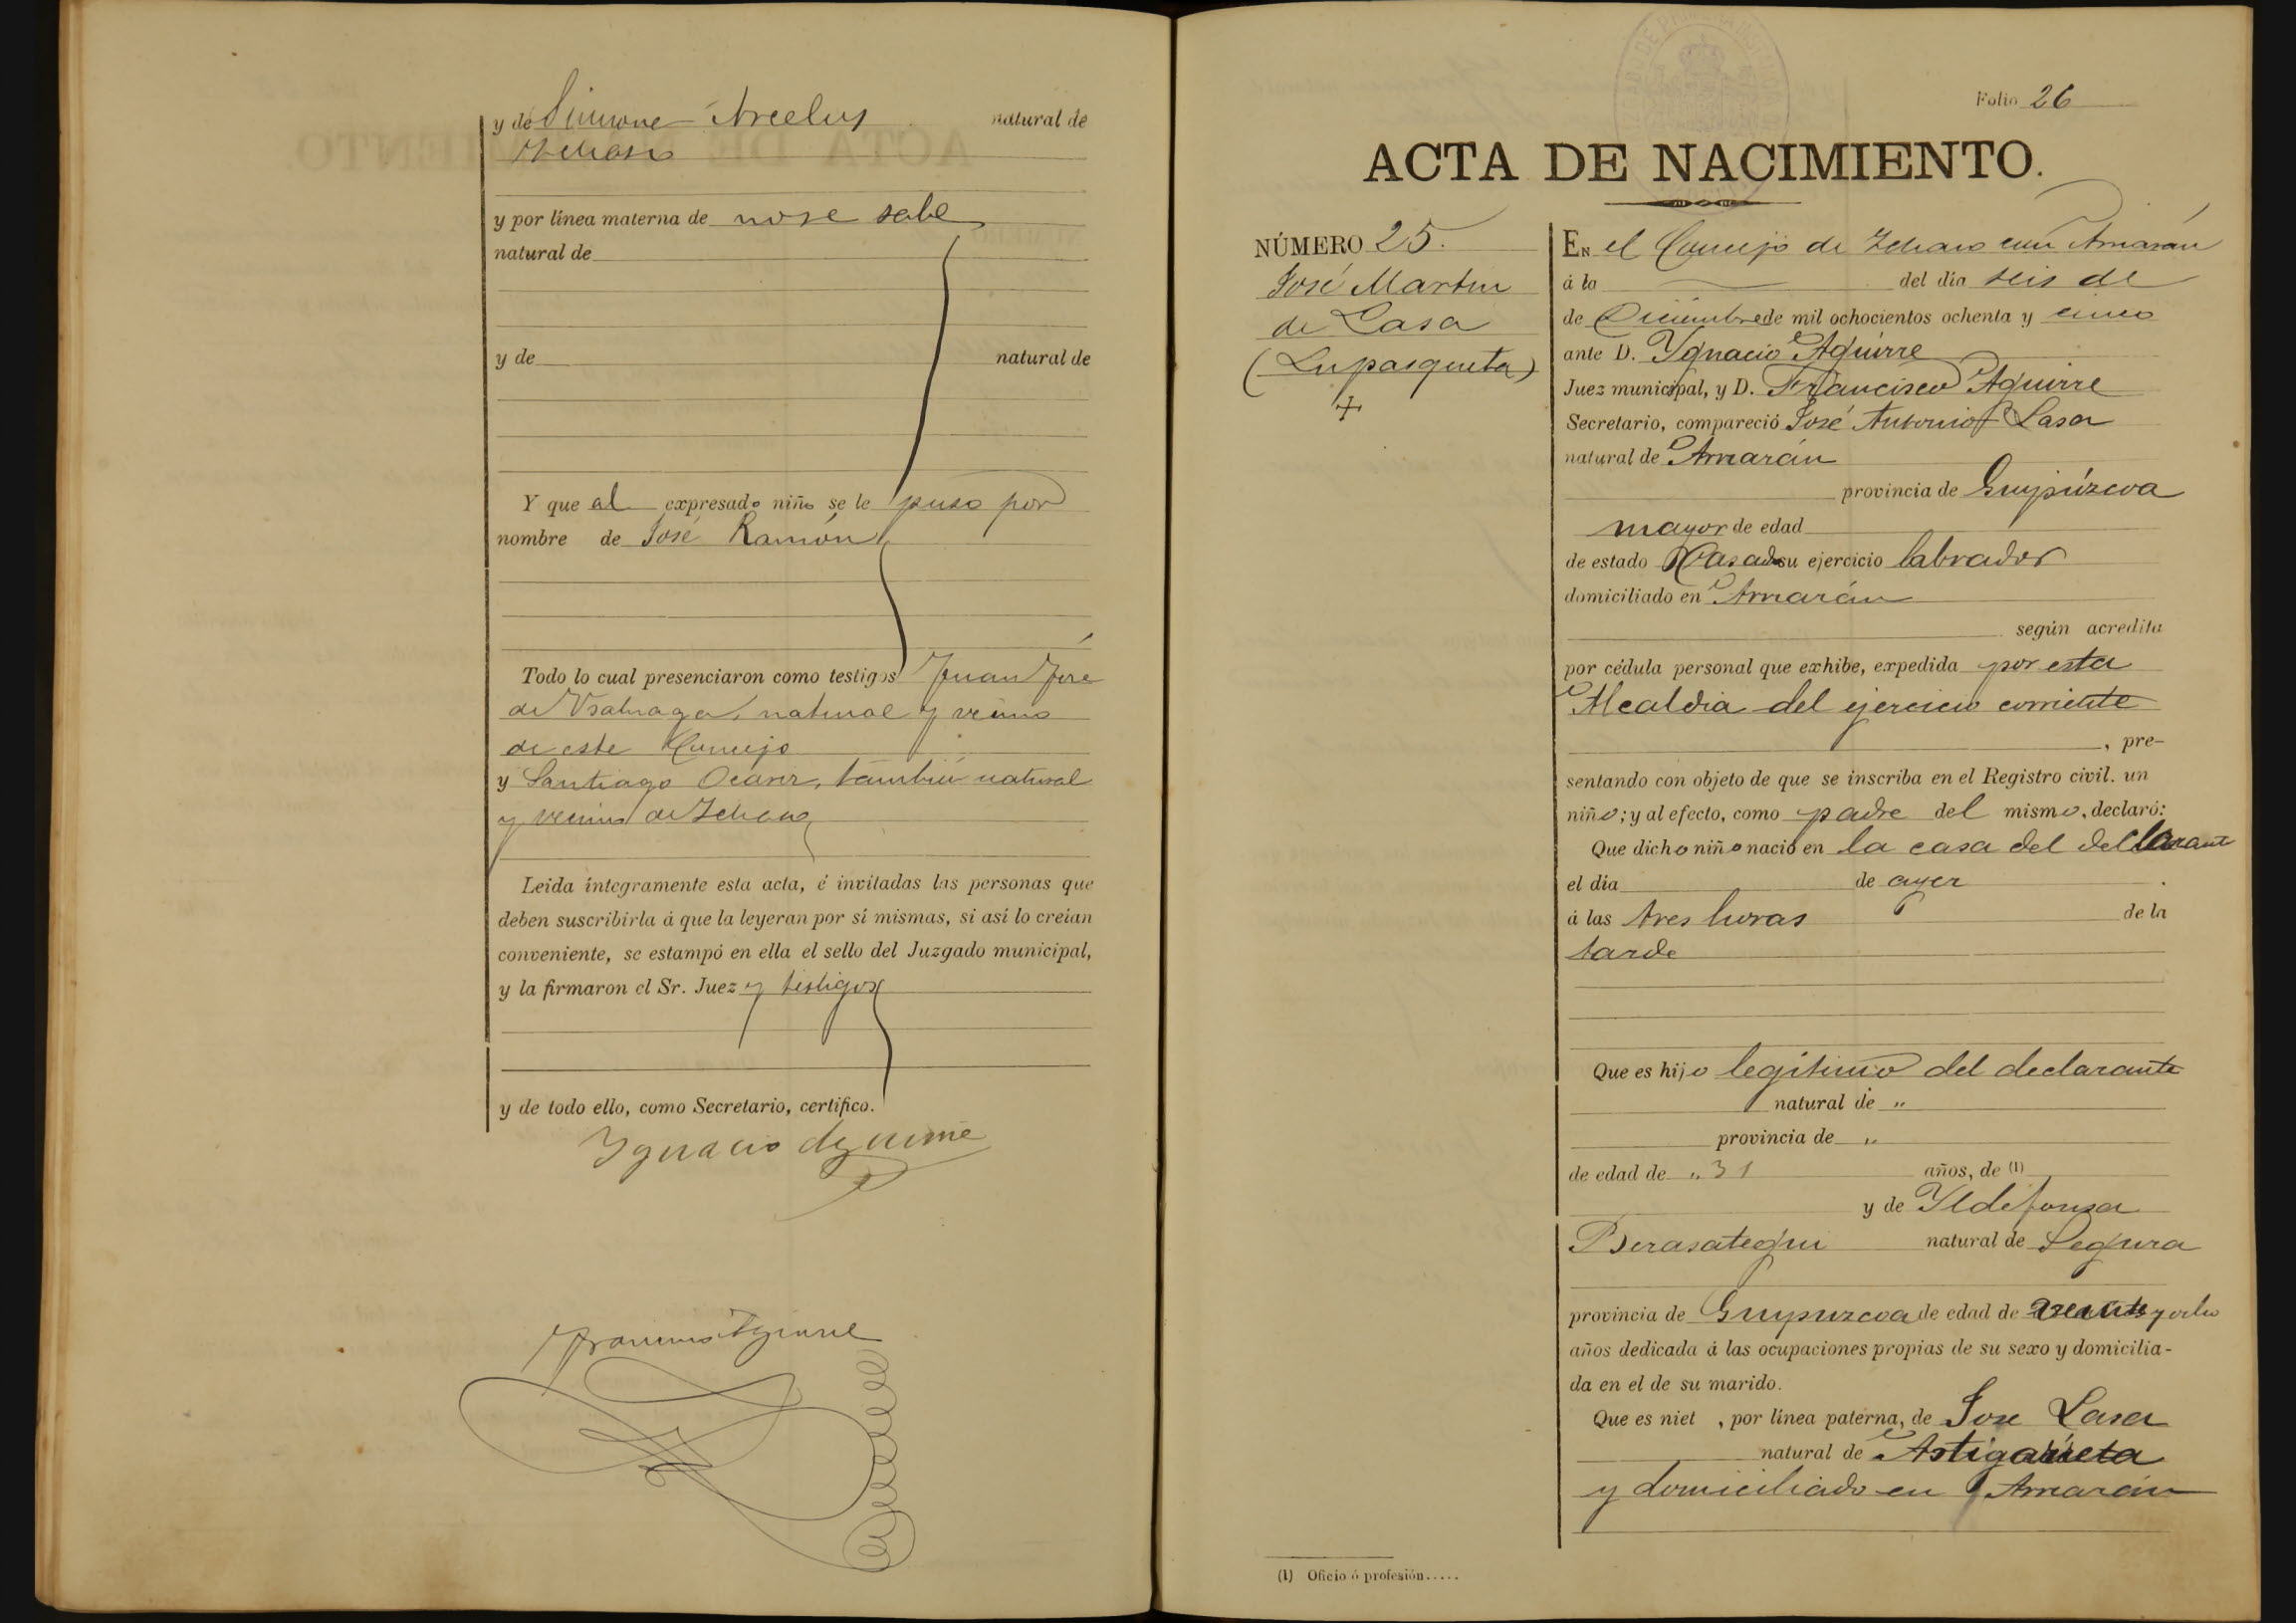 y de Simona Arcelus natural de
Ichaso
y por línea materna de no se sabe
natural de
y de natural de
Y que al expresado niño se le puso por
nombre de José Ramón
Todo lo cual presenciaron como testigos Juan José
de natural y vecino
de este Concejo
y Santiago tambien natural
y vecino de Ichaso
Leida íntegramente esta acta, é invitadas las personas que
deben suscribirla á que la leyeran por sí mismas, si así lo creían
conveniente, se estampó en ella el sello del Juzgado municipal,
y la firmaron el Sr. Juez y testigos
y de todo ello, como Secretario, certifico.
Ygnacio Aguirre
Francisco Aguirre
Folio 26
ACTA DE NACIMIENTO.
NÚMERO 25.
José Martin
de Lasa
(Lupasqueta)
EN el Concejo de Ichaso con Arriarán
á la del día seis de
de Diciembre de mil ochocientos ochenta y cinco
ante D. Ygnacio Aguirre
Juez municipal, y D. Francisco Aguirre
Secretario, compareció José Antonio Lasa
natural de Arriarán
provincia de Guipúzcoa
mayor de edad
de estado Casado su ejercicio labrador
domiciliado en Arriarán
según acredita
por cédula personal que exhibe, expedida por esta
Alcaldia del ejercicio corriente
, pre-
sentando con objeto de que se inscriba en el Registro civil. un
niño; y al efecto, como padre del mismo, declaró:
Que dicho niño nació en la casa del declarante
el día de ayer
á las tres horas de la
tarde
Que es hijo legítimo del declarante
natural de "
provincia de "
de edad de " 31 años, de (1)
y de Yldefonsa
Berasategui natural de Segura
provincia de Guipuzcoa de edad de veinte y ocho
años dedicada á las ocupaciones propias de su sexo y domicilia-
da en el de su marido.
Que es niet , por línea paterna, de Jose Lasa
natural de Astigarreta
y domiciliado en Arriarán
(1) Oficio ó profesión.....